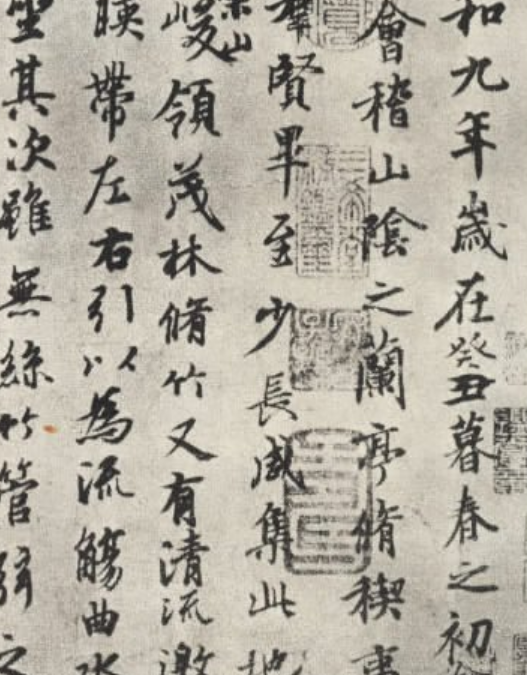 和九年歲在癸丑暮春之初
會稽山陰之蘭亭脩稧事
羣賢畢至少長咸集此地
崇山峻領茂林脩竹又有清流激
暎帶左右引以為流觴曲水
坐其次雖無絲竹管弦之